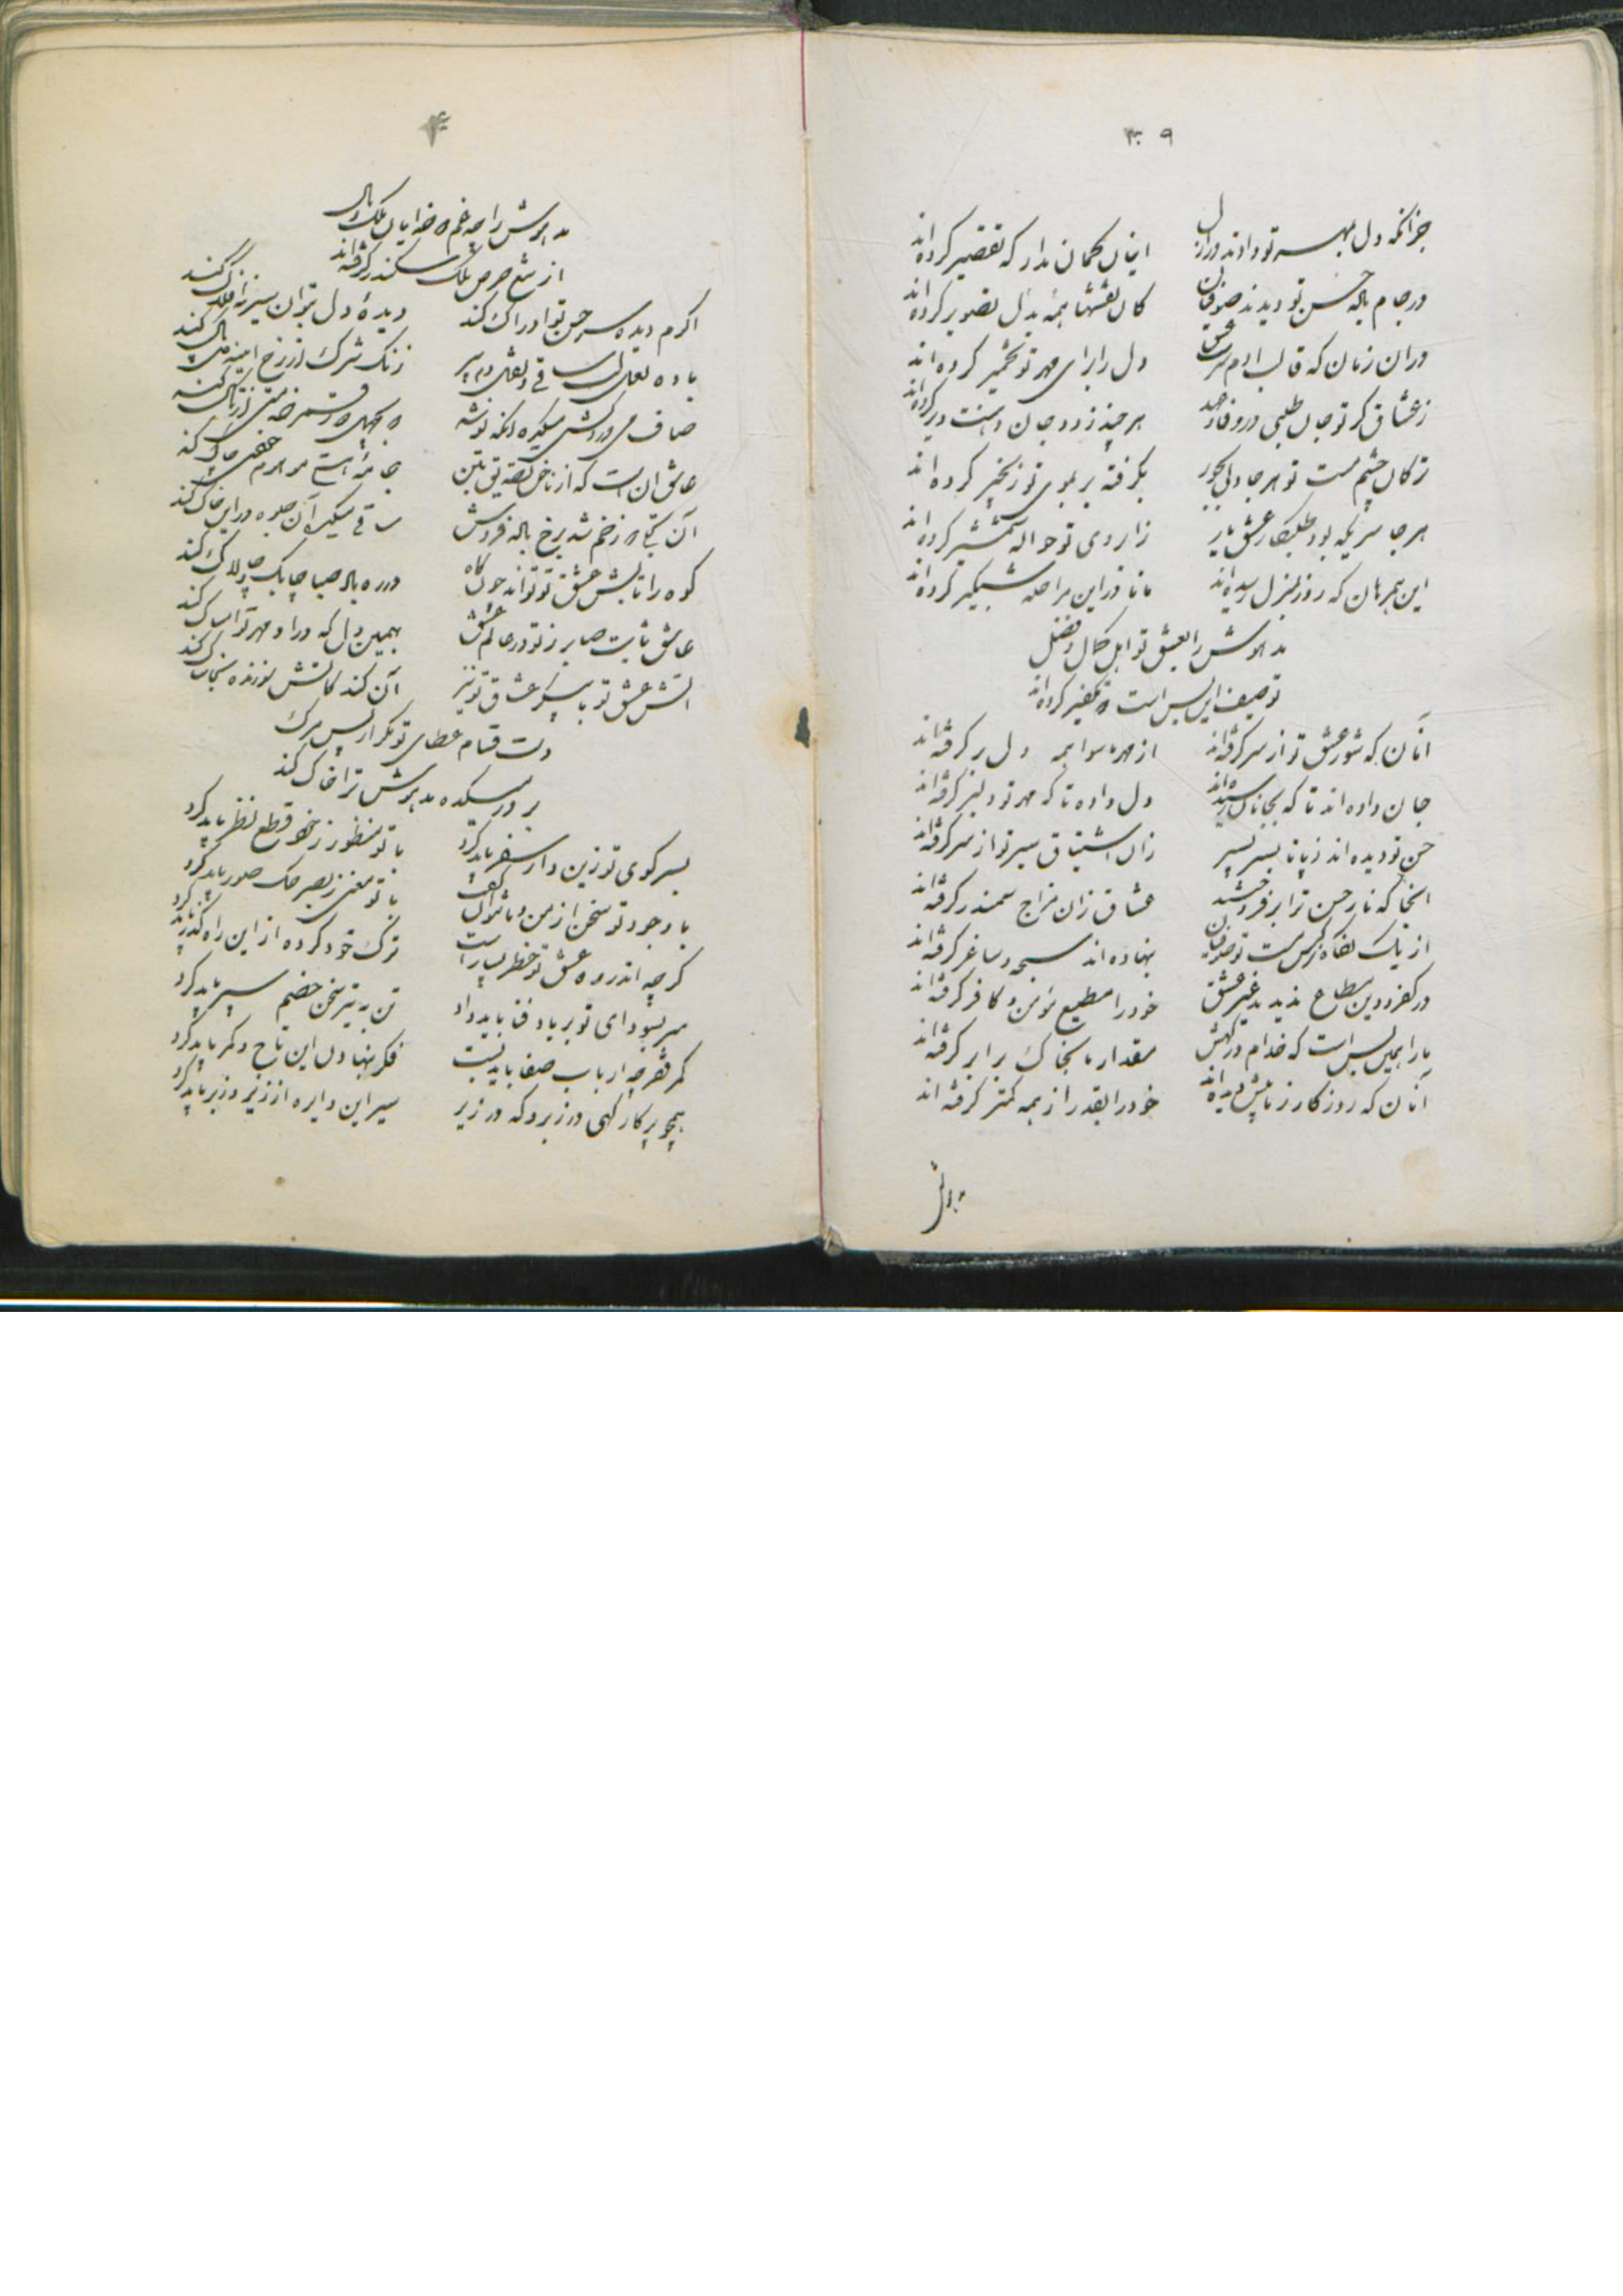 ۳۰۹
جز آنکه دل بمهر تو دادند در ازل
اینان گمان مدار که تقصیر کرده‌اند
در جام باله حسن تو دیدند صوفیان
کان نقشها همه بدل تصویر کرده‌اند
در ان زمان که قالب ادم سرشت عشق
دل را برای مهر تو تخمیر کرده‌اند
ز عشاق کر تو جان طلبی در وفا و عهد
هر چند زود جان دهنت دیر کرده‌اند
ترکان چشم مست تو هر جا دلی بجور
بگرفته بر بموی تو زنجیر کرده‌اند
هر جا سریکه بود طلبکار عشق یار
ز ابروی تو حواله شمشیر کرده‌اند
این همرهان که روز بمنزل رسیده‌اند
مانا در این مراحله شبگیر کرده‌اند
مدهوش را بعشق تو اهل کمال و فضل
توصیف این بس است که تکفیر کرده‌اند
انان که شور عشق تو از سر گرفته‌اند
از مهر ماسوا همه دل بر گرفته‌اند
جان داده‌اند تا که بجانان رسیده‌اند
دل داده تا که مهر تو دلبر گرفته‌اند
حسن تو دیده‌اند ز پا تا بسر بسر
زان اشتیاق سیر تو از سر گرفته‌اند
انجا که نار حسن ترا بر فروختند
عشاق زان مزاج سمندر گرفته‌اند
از یک نگاه نرکس مست تو صوفیان
بنهاده‌اند سبحه و ساغر گرفته‌اند
در کفر و دین مطاع ندیدند غیر عشق
خود را مطیع مومن و کافر گرفته‌اند
ما را همین بس است که خدام درگهش
مقدار ما بخاک برابر گرفته‌اند
آنان که روزگار ز ما پیش دیده‌اند
خود را بقدر از همه کمتر گرفته اند
مدهوش
مدهوش را چه غم که خدایان ملک و مال
از تیغ حرص ملک سکندر گرفته‌اند
اگرم دیده سر حسن تو ادراک کند
دیدهٔ دل بتوان سیر نه افلاک کند
باده لعلی لب ساقی و
زنک شرک از رخ اینه دل پاک کند
صاف می دردکش میکده آنکه نوشد
عاشق ان است که از ناخن تصدیق یقین
جامهٔ
آن که زخم شد برخ باله فروش
ساقی میکده آن جلوه در این خاک کند
کوه را تابش عشق تو تواند چون کاه
در ره باله صبا چابک و چالاک کند
عاشق ثابت صابر ز تو در عالم عشق
بهمین دل که در او مهر تو امساک کند
اتش عشق تو با پیکر عشاق تو نیز
آن کند کاتش سوزنده بخاشاک کند
دست قسام عطای تو مکر از پس مرک
بر در میکده مدهوش ترا خاک کند
بسر کوی تو زین دار سفر باید کرد
با تو منظور ز خود قطع نظر باید کرد
با وجود تو سخن از من و ما نتوان گفت
با تو معنی ز بصر حک صور باید کرد
کر چه اندر ره عشق تو خطر بسیار است
ترک خود کرده از این راه گذر باید کرد
سر بسودای تو بر باد فنا باید داد
تن به تیر سخن خصم سپر باید کرد
کمر فقر چه ارباب صفا باید بست
فکر بنهادن این تاج و کمر باید کرد
همچو پرکار کهی در زبر و که در زیر
سیر این دایره از زیر و زبر باید کرد